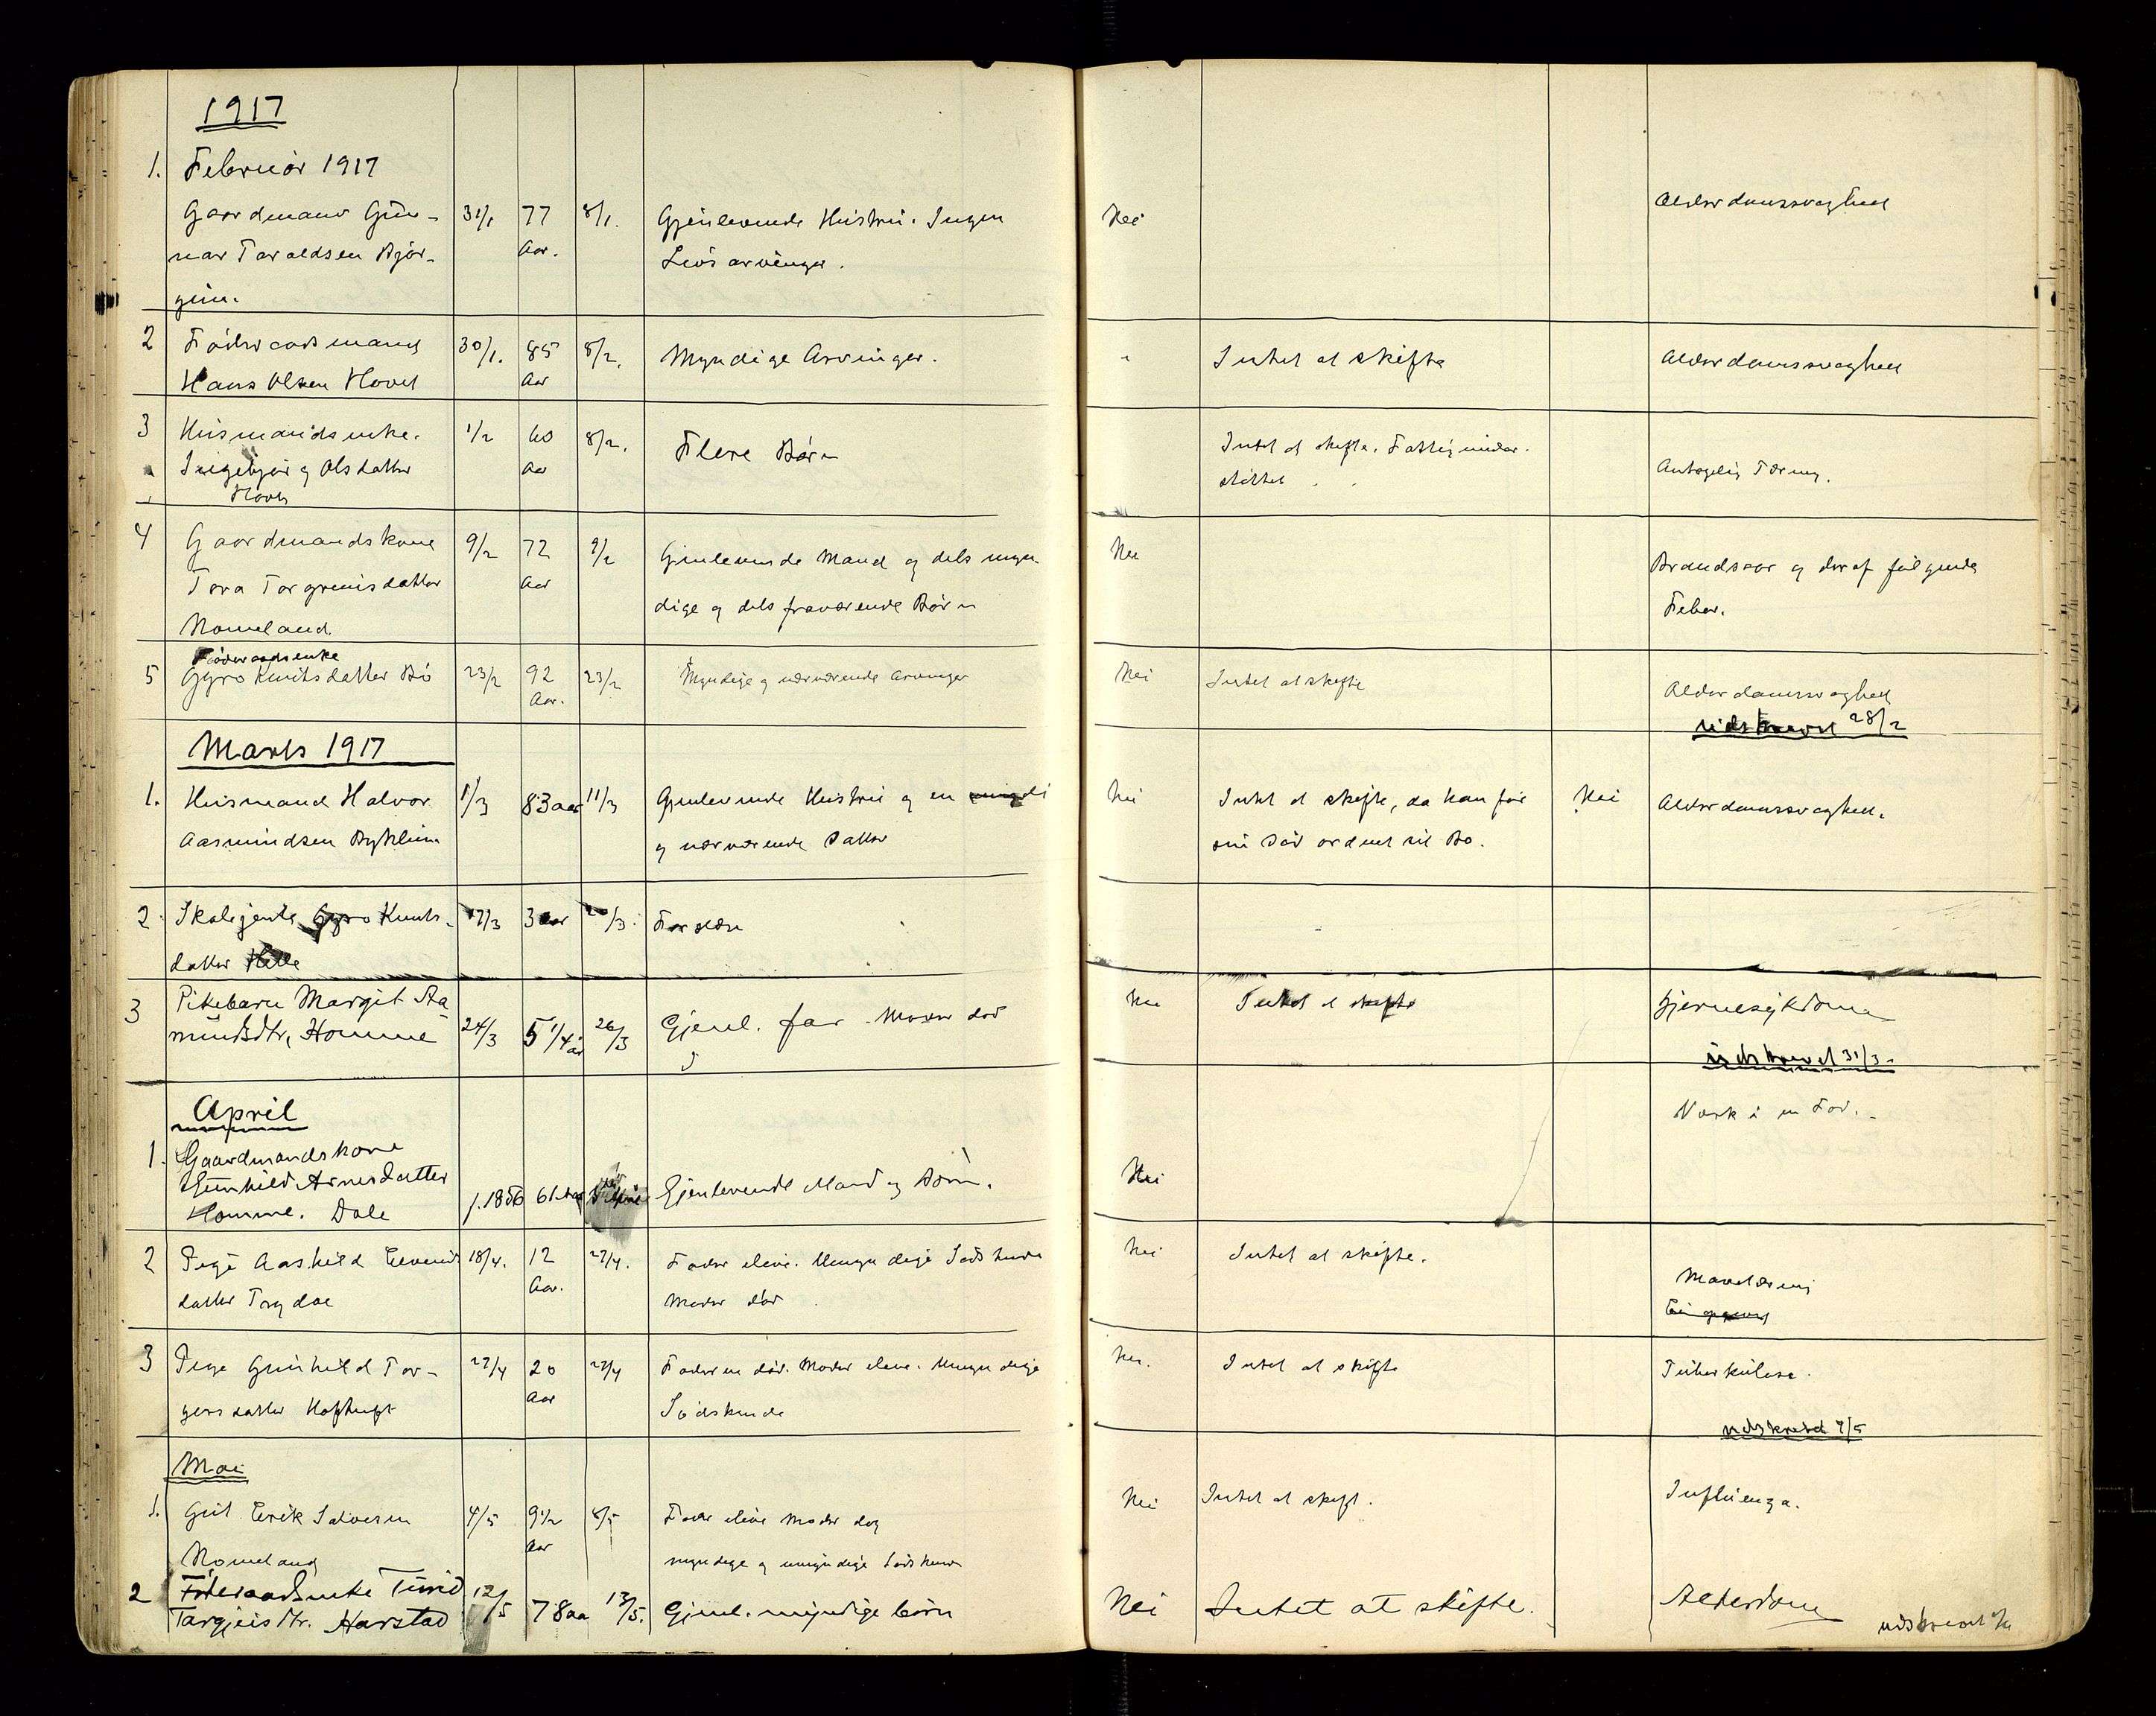 1917
1. Februar 1917
Gaardmand Gun- 31/1 77 8/1. Gjenlevende Hustru. Ingen Nei Alderdomssvaghed
nar Taraldsen Bjør- Aar. Livsarvinger.
gum.
2 Føderaadsmand 30/1. 85 8/2. Myndige Arvinger. " Intet at skifte Alderdomssvaghed
Hans Olsen Hovet Aar
3 Husmandsenke. 1/2 60 8/2. Flere Børn Intet at skifte. Fattigunder-
Ingebjørg Olsdatter Aar støttet Antagelig Tæring.
Hovet
4 Gaardmandskone 9/2 72 9/2 Gjenlevende Mand og dels myn Nei Brandsaar og deraf følgende
Tora Torgrimsdatter Aar dige og dels fraværende Børn Feber.
Nomeland
Føderaadsenke
5 Gyro Knutsdatter Bø 23/2 92 23/2 Myndige og nærværende Arvinger Nei Intet at skifte Alderdomssvaghed
Aar.
udskrevet 28/2
Marts 1917
1. Husmand Halvor 1/3 83 aar 11/3 Gjenlevende Hustru og en Nei Intet at skifte, da han før Nei Alderdomssvaghed.
Aasmundsen Ryklum og nærværende Datter sin Død ordnet sit Bo.
2. Skolejente Gyro Knuts- 17/3 3 aar /3. Forældre
datter Helle
3 Pikebarn Margit Aa Nei Intet at skifte Hjernesykdom
mundsdtr, Homme 24/3 5 1/4 år 26/3 Gjenl. far. Moder død
udskrevet 31/3
April
Værk i en Fod.
1. Gaardmandskone
Gunhild Arnesdatter Nei
Homme. Dale f. 1856 61 aar Gjenlevende Mand og Børn.
2 Pige Aashild Eivinds 18/4. 12 27/4. Fader ilive. Umyndige Sødskende Nei Intet at skifte.
datter Trydal Aar. Moder død Mavetæring
3 Pige Gunhild Tor- 27/4 20 27/4 Faderen død. Moder ilive. Umyndige Nei. Intet at skifte Tuberkulose.
gersdatter Aar Sødskende
udskrevet 7/5
Mai
1. Gut Erik Salvesen 4/5 9 1/2 8/5 Fader ilive Moder død Nei Intet at skifte. Influenza.
Nomeland Aar myndige og umyndige Sødskende
2 Føderaadsenke Turid 12/5 78 aa 13/5. Gjenl. myndige børn Nei Intet at skifte. Alderdom
Targjeisdtr. Harstad udskrevet